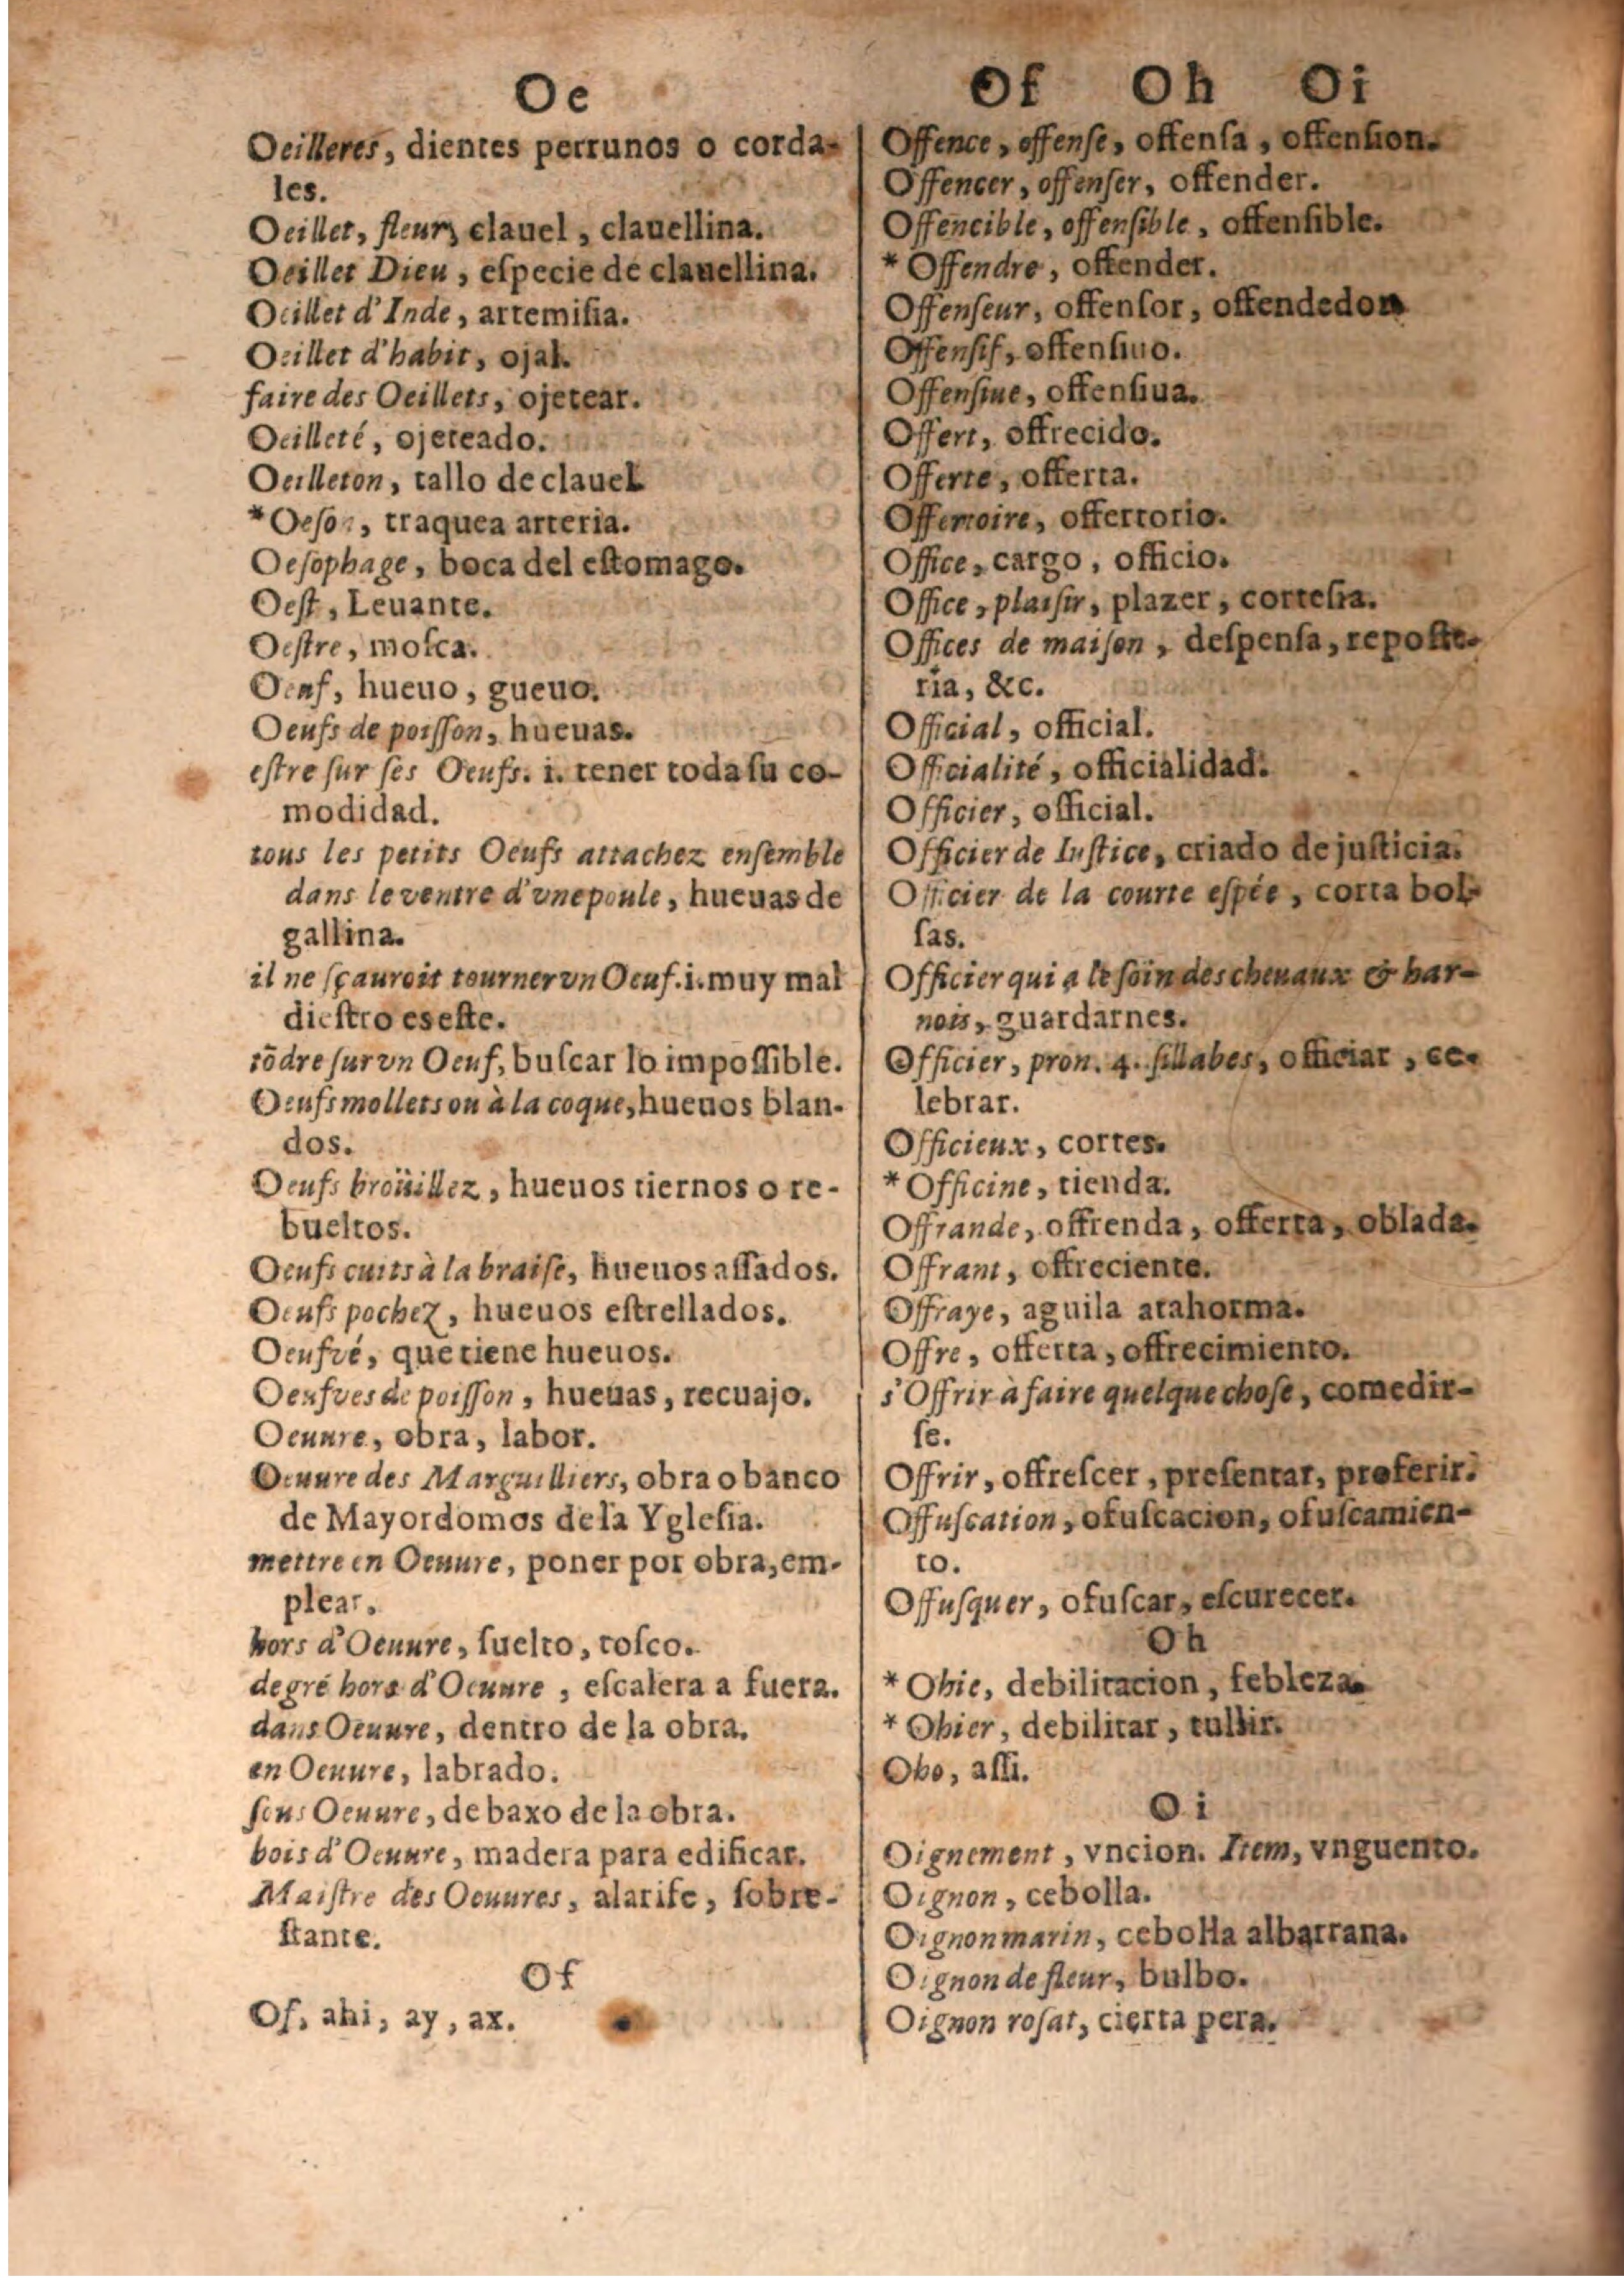 Oe
Oeilleres, dientes perrunos o corda-
les.
Oeillet, fleur, clauel, clauellina.
Oeillet Dieu, eſpecie de clauellina.
Oeillet d'Inde, artemiſia.
Oeillet d'habit, ojal.
faire des Oeillets, ojetear.
Oeilleté, ojeteado.
Oeilleton, tallo de clauel.
*Oeſon, traquea arteria.
Oeſophage, boca del eſtomago.
Oeſt, Leuante.
Oeſtre, moſca.
Oeuf, hueuo, gueuo.
Oeufs de poiſſon, hueuas.
eſtre ſur ſes Oeufs. i. tener toda ſu co-
modidad.
tous les petits Oeufs attachez enſemble
dans le ventre d'vne poule, hueuas de
gallina.
il ne ſçauroit tourner vn Oeuf. i. muy mal
dieſtro es eſte.
tõdre ſur vn Oeuf, buſcar lo impoſſible.
Oeufs mollets ou à la coque, hueuos blan-
dos.
Oeufs broüillez, hueuos tiernos o re-
bueltos.
Oeufs cuits à la braiſe, hueuos aſſados.
Oeufs pochez, hueuos eſtrellados.
Oeufvé, que tiene hueuos.
Oeufves de poiſſon, hueuas, recuajo.
Oeuure, obra, labor.
Oeuure des Marguilliers, obra o banco
de Mayordomos de la Ygleſia.
mettre en Oeuure, poner por obra, em-
plear.
hors d'Oeuure, ſuelto, toſco.
degré hors d'Oeuure, eſcalera a fuera.
dans Oeuure, dentro de la obra.
en Oeuure, labrado.
ſous Oeuure, debaxo de la obra.
bois d'Oeuure, madera para edificar.
Maiſtre des Oeuures, alarife, ſobre-
ſtante.
Of
Of, ahi, ay, ax.
Of Oh Oi
Offence, offenſe, offenſa, offenſion.
Offencer, offenſer, offender.
Offencible, offenſible, offenſible.
*Offendre, offender.
Offenſeur, offenſor, offendedor.
Offenſif, offenſiuo.
Offenſiue, offenſiua.
Offert, offrecido.
Offerte, offerta.
Offertoire, offertorio.
Office, cargo, officio.
Office, plaiſir, plazer, corteſia.
Offices de maiſon, deſpenſa, repoſte-
ria, &c.
Official, official.
Officialité, officialidad.
Officier, official.
Officier de Iuſtice, criado de juſticia.
Officier de la courte eſpée, corta bol-
ſas.
Officier qui a le ſoin des cheuaux & har-
nois, guardarnes.
Officier, pron. 4. ſillabes, officiar, ce-
lebrar.
Officieux, cortes.
*Officine, tienda.
Offrande, offrenda, offerta, oblada.
Offrant, offreciente.
Offraye, aguila atahorma.
Offre, offerta, offrecimiento.
s'Offrir à faire quelque choſe, comedir-
ſe.
Offrir, offreſcer, preſentar, proferir.
Offuſcation, ofuſcacion, ofuſcamien-
to.
Offuſquer, ofuſcar, eſcurecer.
Oh
*Ohie, debilitacion, febleza.
*Ohier, debilitar, tullir.
Oho, aſſi.
Oi
Oignement, vncion. Item, vnguento.
Oignon, cebolla.
Oignon marin, cebolla albarrana.
Oignon de fleur, bulbo.
Oignon roſat, cierta pera.